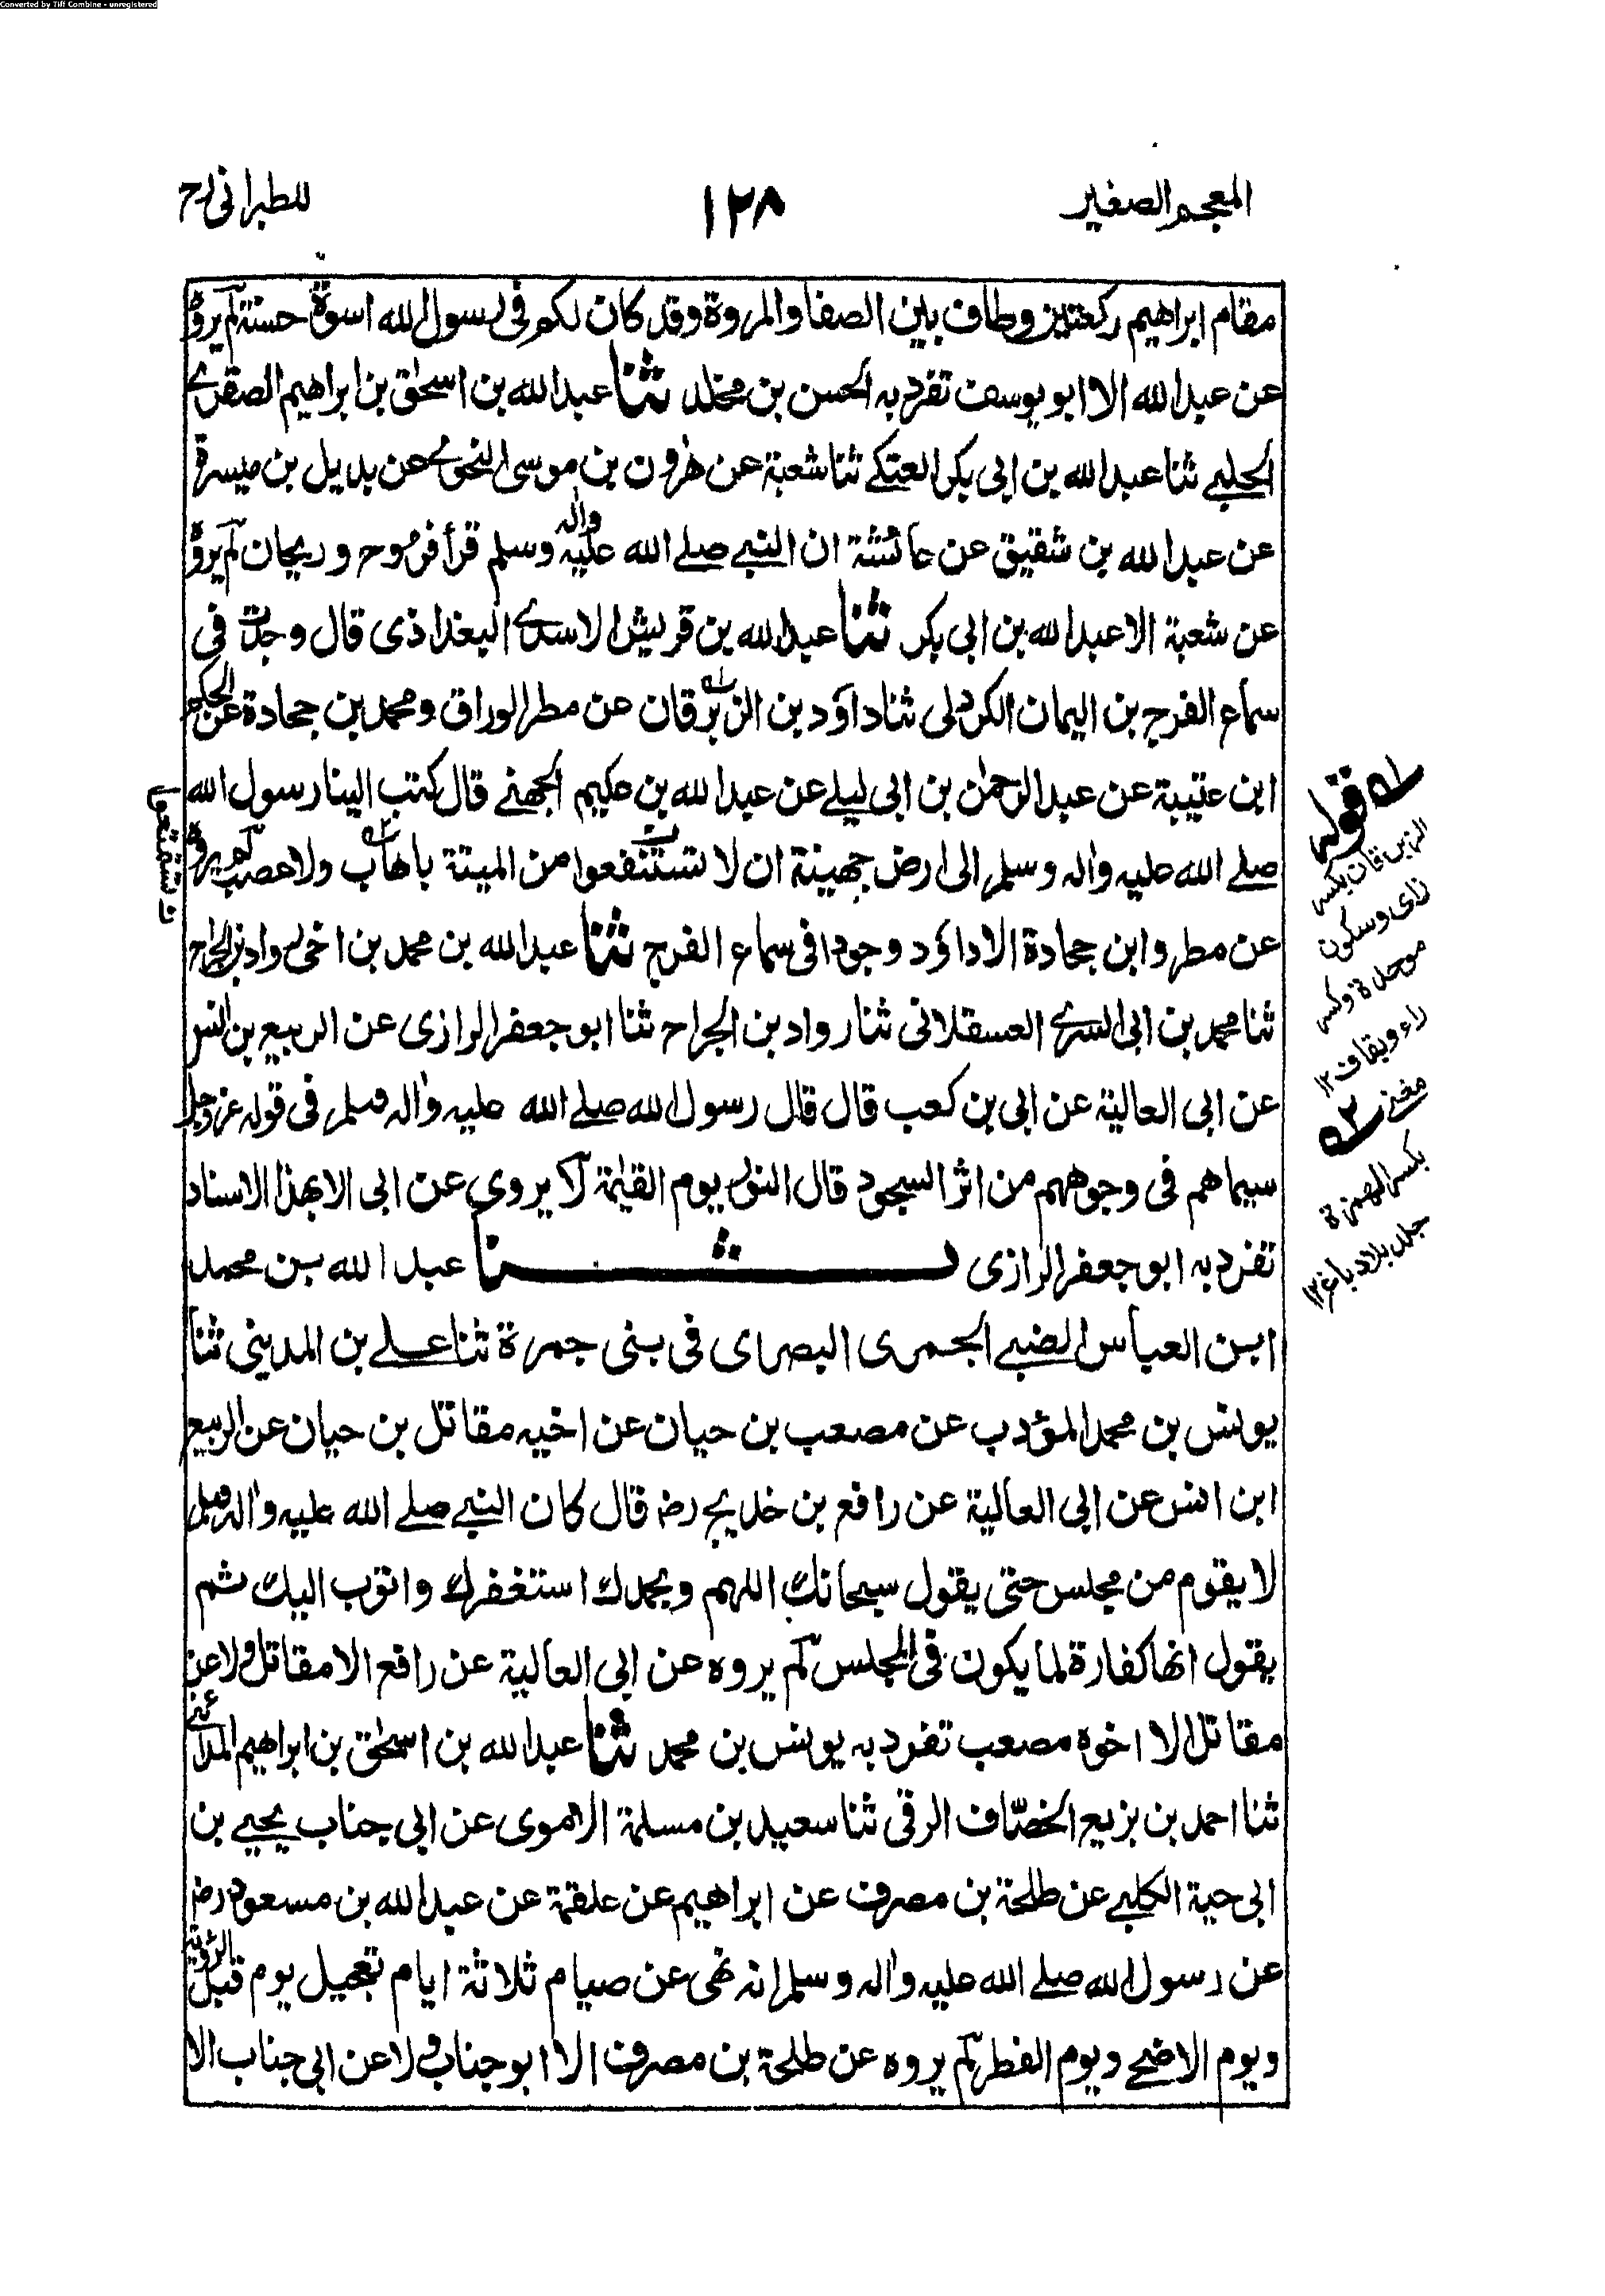 Converted by Tiff Combine - unregistered
المعجم الصغير
١٢٨
للطبرانی رح
مقام ابراهيم ركعتين وطاف بين الصفا والمروة وقد كان لكم فی رسول الله اسوة حسنة لم يروه
عن عبد الله الا ابو يوسف تفرد به الحسن بن مخلد ثنا عبد الله بن اسحٰق بن ابراهيم الصقرے
الحلبے ثنا عبد الله بن ابی بكر العتكے ثنا شعبة عن هٰرون بن موسی النحوے عن بديل بن ميسرة
عن عبد الله بن شقيق عن عائشة ان النبے صلے الله عليه واٰله وسلم قرأ فروح وريحان لم يروه
عن شعبة الا عبد الله بن ابی بكر ثنا عبد الله بن قريش الاسدے البغداذی قال وجدت فی
سماع الفرج بن اليمان الكردلی ثنا داوٗد بن الزبرقان عن مطر الوراق ومحمد بن جحادة عن الحكم
ابن عتيبة عن عبد الرحمٰن بن ابی ليلے عن عبد الله بن عكيم الجهنے قال كتب الينا رسول الله
صلے الله عليه واٰله وسلم الی ارض جهينة ان لا تستنفعوا من الميتة باهاب ولا عصب لم يروه
عن مطر وابن جحادة الا داوٗد وجودا فی سماع الفرج ثنا عبد الله بن محمد بن اخی رواد بن الجراح
ثنا محمد بن ابی السرے العسقلانی ثنا رواد بن الجراح ثنا ابو جعفر الرازی عن الربيع بن انس
عن ابی العالية عن ابی بن كعب قال قال رسول الله صلے الله عليه واٰله وسلم فی قوله عز وجل
سيماهم فی وجوههم من اثر السجود قال النور يوم القيٰمة لا يروی عن ابی الا بهذا الاسناد
تفرد به ابو جعفر الرازی ثنا عبد الله بن محمد
ابن العباس الضبے الجمری البصرای فی بنی جمرة ثنا علے بن المدينی ثنا
يونس بن محمد المؤدب عن مصعب بن حيان عن اخيه مقاتل بن حيان عن الربيع
ابن انس عن ابی العالية عن رافع بن خديج رض قال كان النبے صلے الله عليه واٰله وسلم
لا يقوم من مجلس حتی يقول سبحانك اللهم وبحمدك استغفرك واتوب اليك ثم
يقول انها كفارة لما يكون فی المجلس لم يروه عن ابی العالية عن رافع الا مقاتل ولا عن
مقاتل الا اخوه مصعب تفرد به يونس بن محمد ثنا عبد الله بن اسحٰق بن ابراهيم المدائنے
ثنا احمد بن بزيع الخصّاف الرقی ثنا سعيد بن مسلمة الاموی عن ابی جناب يحيے بن
ابی حية الكلبے عن طلحة بن مصرف عن ابراهيم عن علقمة عن عبد الله بن مسعود رض
عن رسول الله صلے الله عليه واٰله وسلم انه نهی عن صيام ثلاثة ايام تعجيل يوم قبل الرؤية
ويوم الاضحے ويوم الفطر لم يروه عن طلحة بن مصرف الا ابو جناب ولا عن ابی جناب الا
ن تستمتعوا
له قوله
الزبرقان بكسر
زای وسكون
موحدة وكسر
راء وبقاف ١٢
مغنی ٢ه
بكسر الهمزة
جلد بلا دباغ ١٢